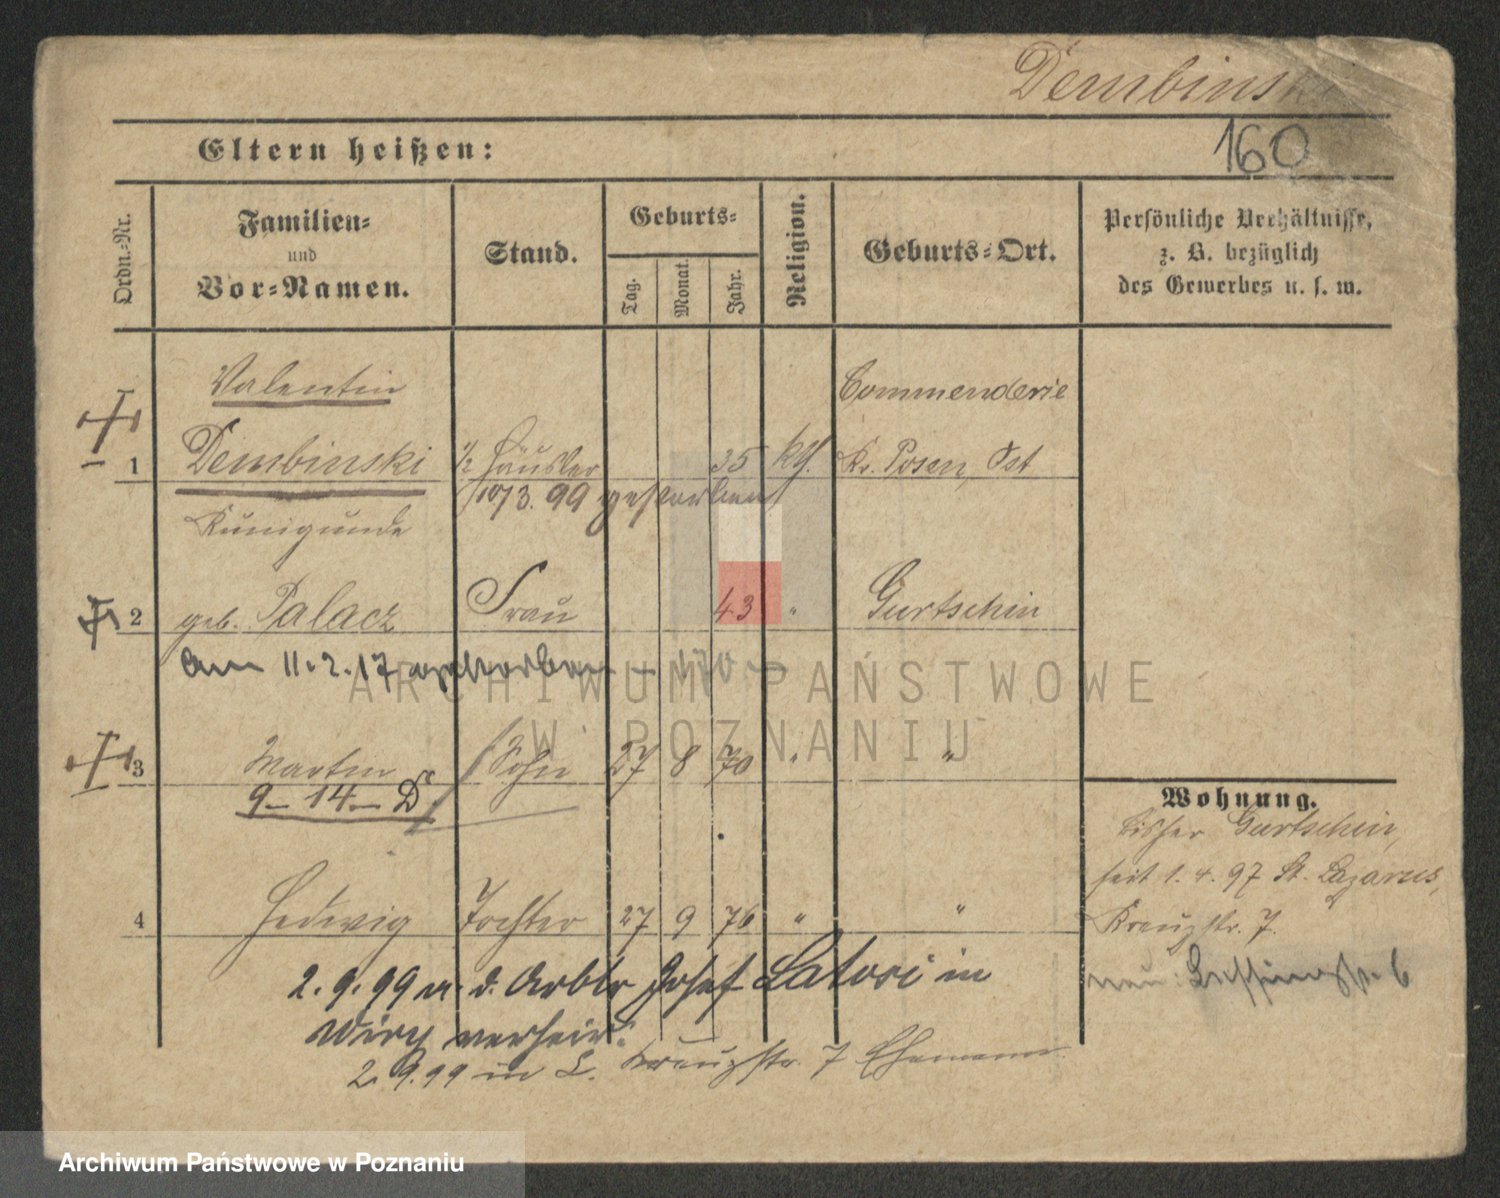 Dembinski
160
Eltern heißen:
Ordn.-Nr.
Familien-
und
Vor-Namen.
Stand.
Geburts-
Tag.
Monat.
Jahr.
Religion.
Geburts-Ort.
Persönliche Verhältnisse,
z. B. bezüglich
des Gewerbes u. s. w.
Valentin
Commenderie
1 Dembinski ½ Häusler 35 kth. Kr. Posen, Ost
10/3. 99 gestorben
Kunigunde
2 geb. Palacz Frau 43 " Gurtschin
am 11.2.17 gestorben
ARCHIWUM PAŃSTWOWE
W POZNANIU
3 Martin Sohn 27 8 70 " "
9–14–D
Wohnung.
bisher Gurtschin,
seit 1.4.97 St. Lazarus,
4 Hedwig Tochter 27 9 76 " "
Kreuzstr. 7.
2.9.99 m. d. Arbtr Josef Latosi in
neu: Lessingstr. 6
Wiry verheir.
2.9.99 in L. Kreuzstr. 7 Ehemann
Archiwum Państwowe w Poznaniu